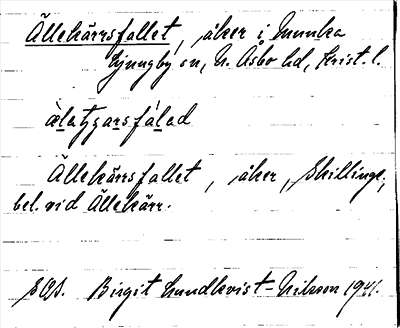 Ällekärrsfallet, åker i Munka
Ljungby sn, N. Åsbo hd, Krist. l.
Ällekärrsfallet, åker, Skillinge,
bel. vid Ällekärr.
SOA. Birgit Lundkvist-Nilsson 1941.